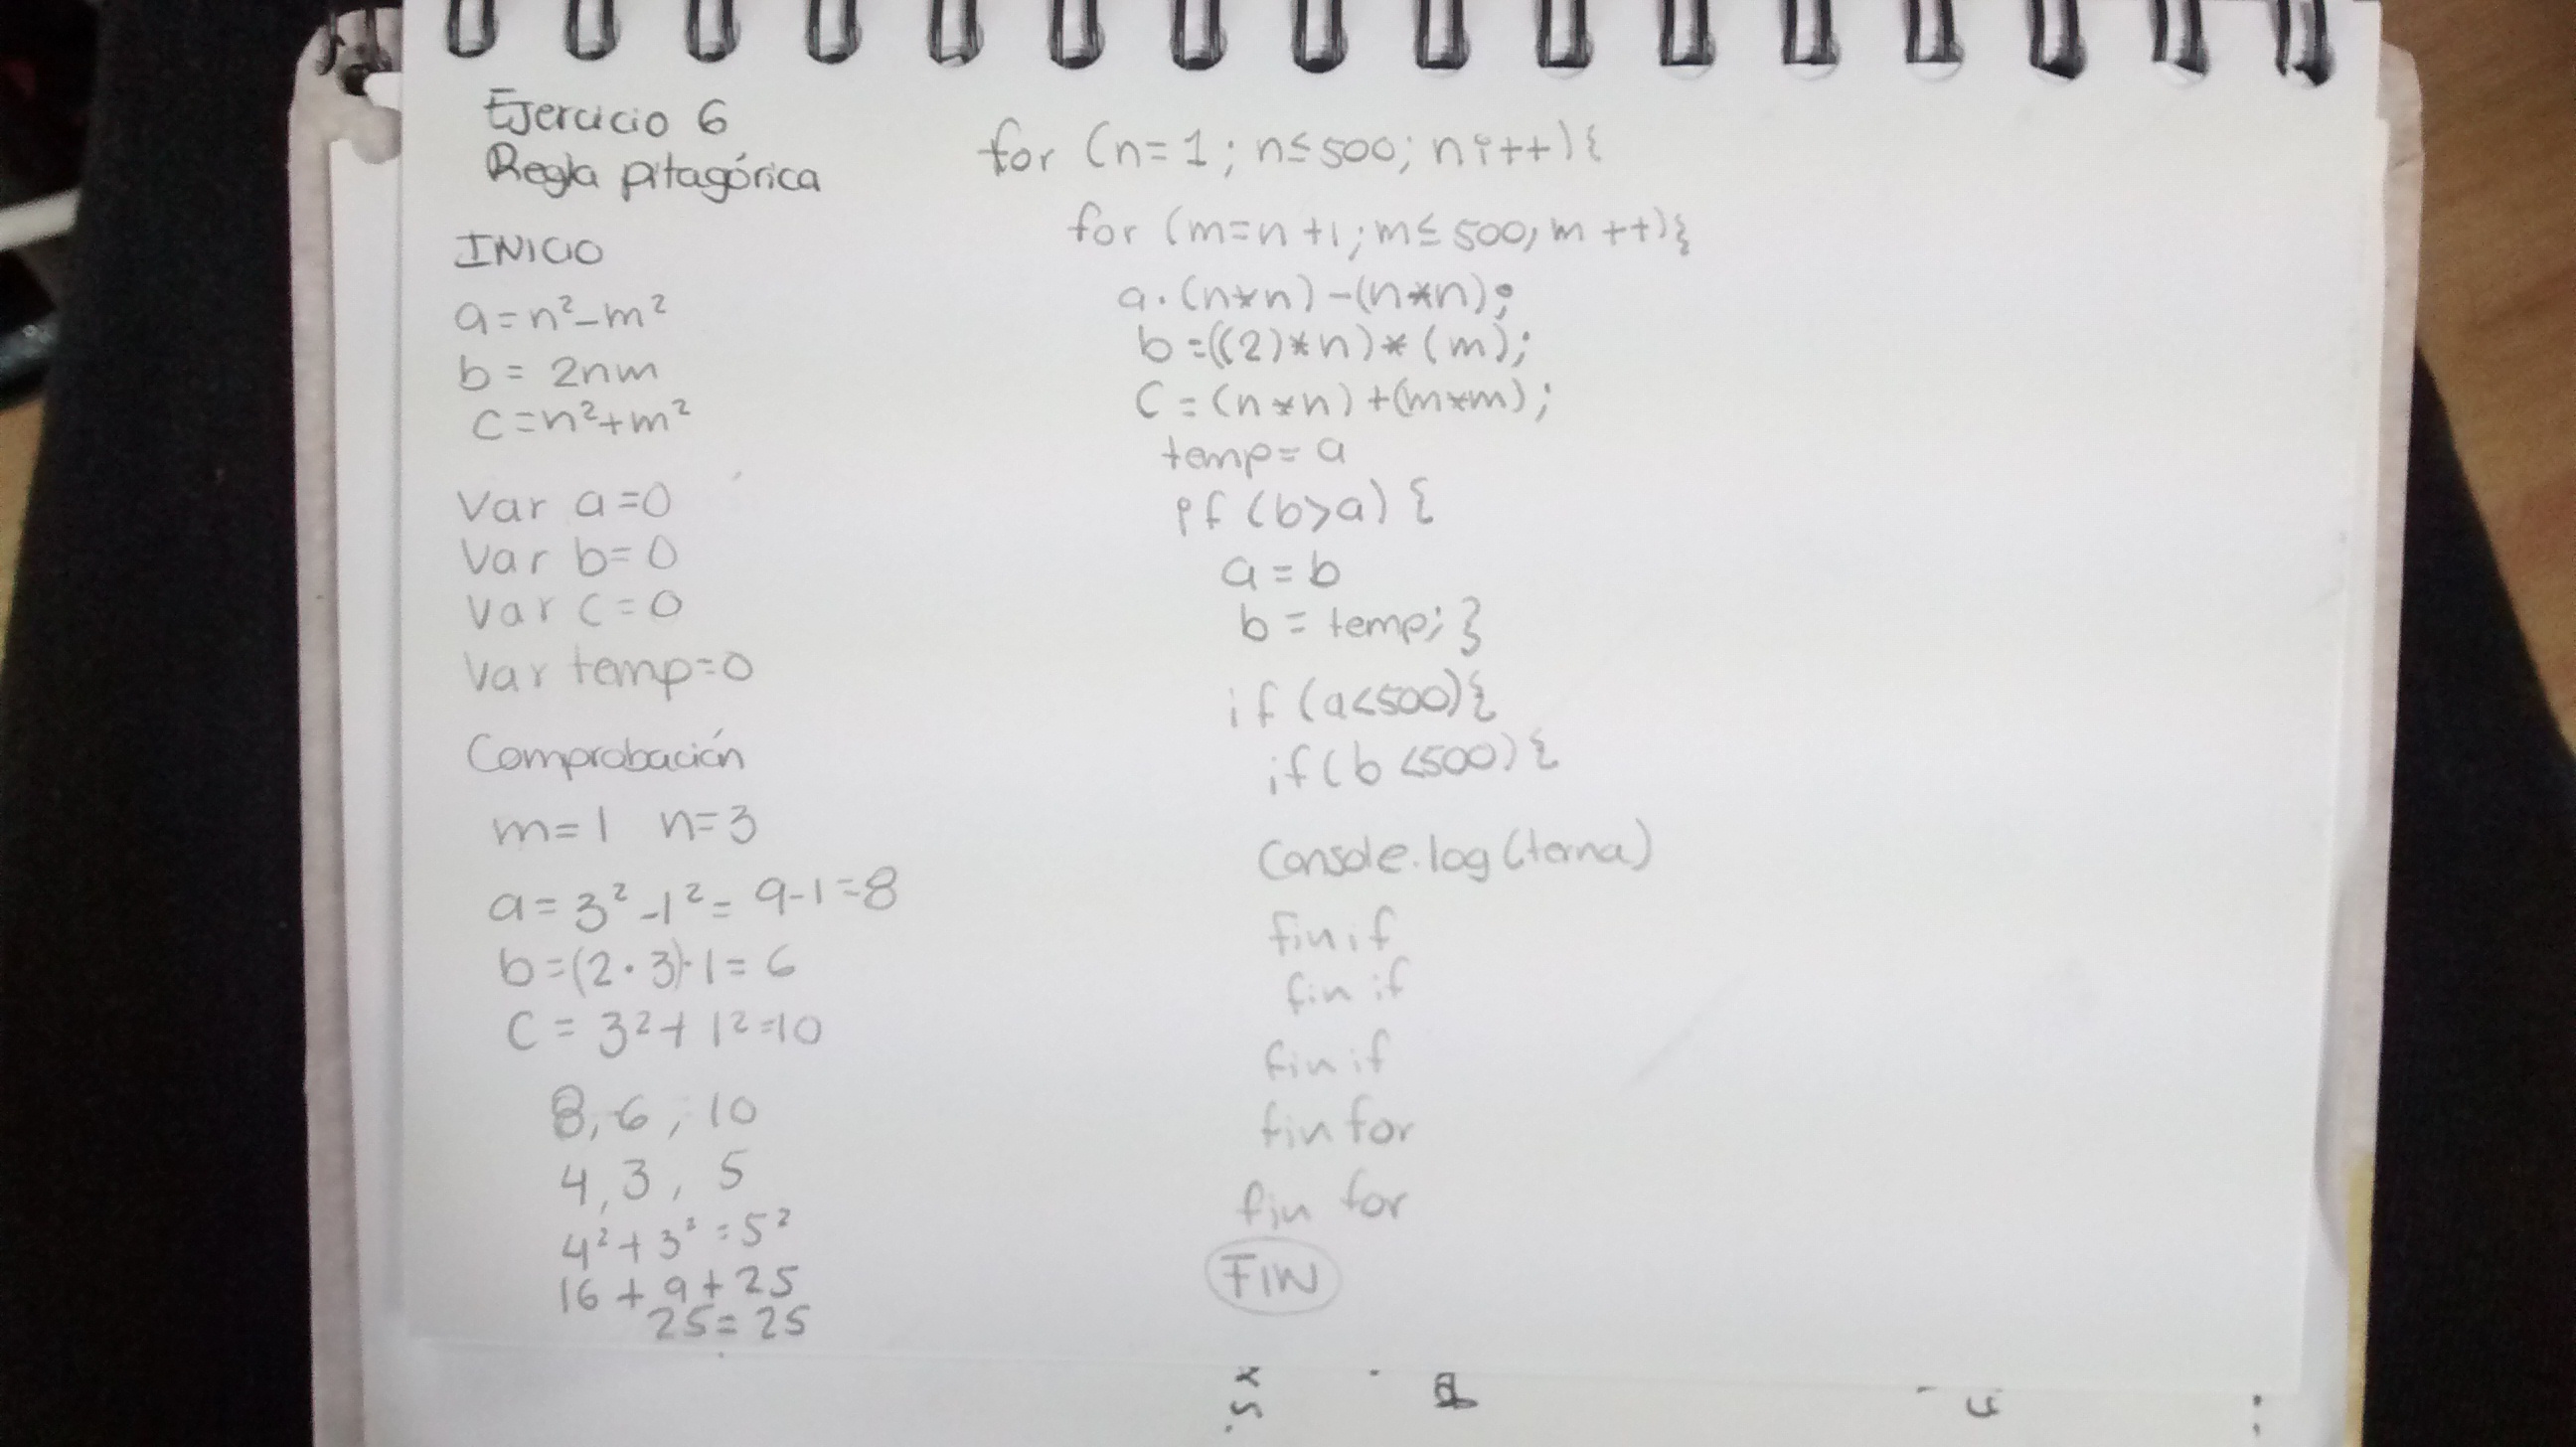 Ejercicio 6
Regla pitagórica
INICIO
a=n²-m²
b = 2nm
c=n²+m²
Var a=0
Var b=0
Var c=0
Var temp=0
Comprobación
m=1 n=3
a=3²-1²= 9-1=8
b=(2·3)·1=6
C = 3²+1²=10
8, 6, 10
4, 3, 5
4²+3²=5²
16+9+25
25=25
for (n=1; n≤500; ni++){
for (m=n+1; m≤500, m++){
a.(n*n)-(n*n);
b=((2)*n)*(m);
C=(n*n)+(m*m);
temp=a
if (b>a) {
a=b
b=temp; }
if (a<500){
if(b<500){
Console.log(terna)
fin if
fin if
fin if
fin for
fin for
FIN